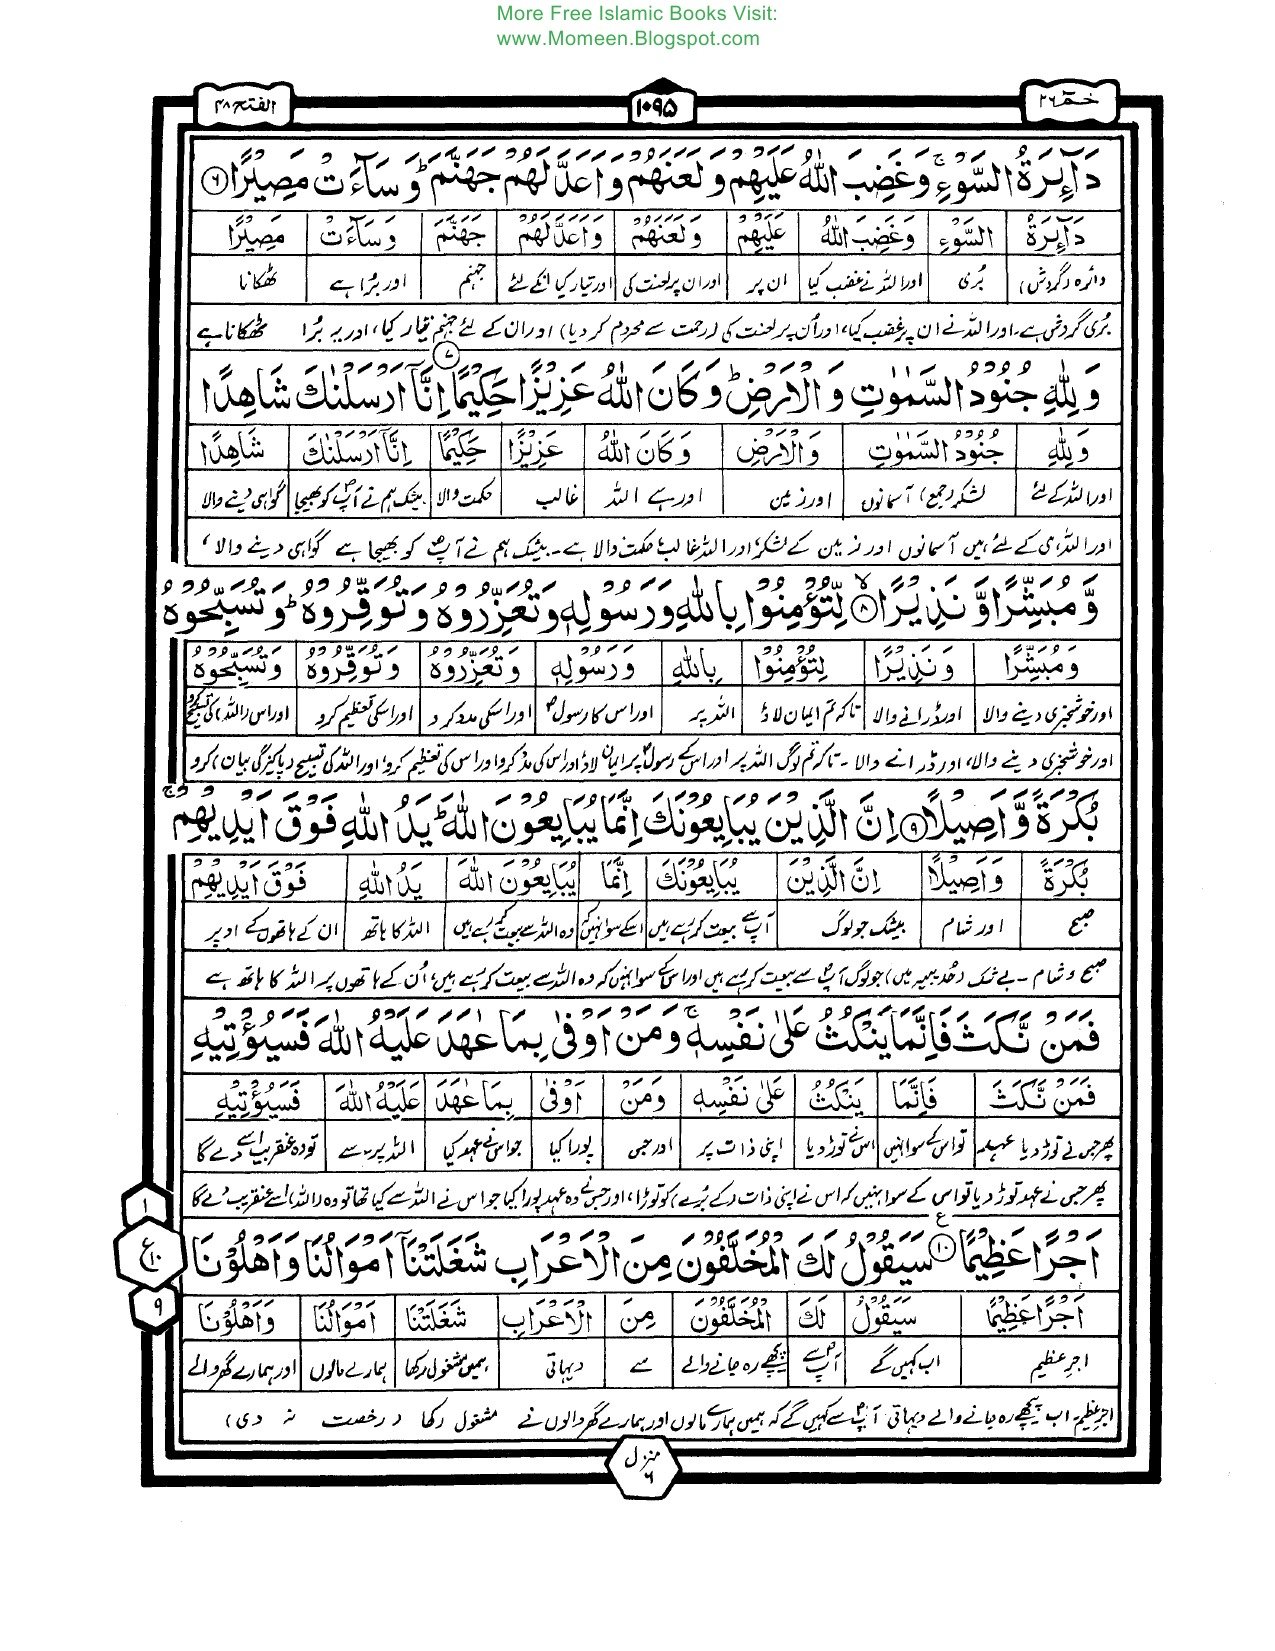 More Free Islamic Books Visit:
www.Momeen.Blogspot.com
حٰمٓ ۲۶
۱۰۹۵
الفتح ۴۸
دَآئِرَةُ السَّوْءِ ۚ وَغَضِبَ اللّٰهُ عَلَيْهِمْ وَلَعَنَهُمْ وَاَعَدَّ لَهُمْ جَهَنَّمَ ؕ وَسَآءَتْ مَصِيْرًا ۶
دَآئِرَةُ السَّوْءِ وَغَضِبَ اللّٰهُ عَلَيْهِمْ وَلَعَنَهُمْ وَاَعَدَّ لَهُمْ جَهَنَّمَ وَسَآءَتْ مَصِيْرًا
دائرہ (گردش) بُری اور اللہ نے غضب کیا ان پر اور ان پر لعنت کی اور تیار کیا انکے لئے جہنم اور بُرا ہے ٹھکانا
بُری گردش ہے۔ اور اللہ نے ان پر غضب کیا، اور اُن پر لعنت کی (رحمت سے محروم کر دیا) اور ان کے لئے جہنم تیار کیا، اور یہ بُرا ٹھکانا ہے
وَلِلّٰهِ جُنُوْدُ السَّمٰوٰتِ وَالْاَرْضِ ؕ وَكَانَ اللّٰهُ عَزِيْزًا حَكِيْمًا ۷ اِنَّآ اَرْسَلْنٰكَ شَاهِدًا
وَلِلّٰهِ جُنُوْدُ السَّمٰوٰتِ وَالْاَرْضِ وَكَانَ اللّٰهُ عَزِيْزًا حَكِيْمًا اِنَّآ اَرْسَلْنٰكَ شَاهِدًا
اور اللہ کے لئے لشکر (جمع) آسمانوں اور زمین اور ہے اللہ غالب حکمت والا بیشک ہم نے آپؐ کو بھیجا گواہی دینے والا
اور اللہ ہی کے لئے ہیں آسمانوں اور زمین کے لشکر، اور اللہ غالب، حکمت والا ہے۔ بیشک ہم نے آپؐ کو بھیجا ہے گواہی دینے والا،
وَّمُبَشِّرًا وَّنَذِيْرًا ۸ لِّتُؤْمِنُوْا بِاللّٰهِ وَرَسُوْلِهٖ وَتُعَزِّرُوْهُ وَتُوَقِّرُوْهُ ؕ وَتُسَبِّحُوْهُ
وَمُبَشِّرًا وَنَذِيْرًا لِتُؤْمِنُوْا بِاللّٰهِ وَرَسُوْلِهٖ وَتُعَزِّرُوْهُ وَتُوَقِّرُوْهُ وَتُسَبِّحُوْهُ
اور خوشخبری دینے والا اور ڈرانے والا تاکہ تم ایمان لاؤ اللہ پر اور اس کا رسولؐ اور اسکی مدد کرو اور اسکی تعظیم کرو اور اس (اللہ) کی تسبیح کرو
اور خوشخبری دینے والا، اور ڈرانے والا۔ تاکہ تم لوگ اللہ پر اور اس کے رسولؐ پر ایمان لاؤ اور اس کی مدد کرو اور اس کی تعظیم کرو، اور اللہ کی تسبیح (پاکیزگی بیان) کرو
بُكْرَةً وَّاَصِيْلًا ۹ اِنَّ الَّذِيْنَ يُبَايِعُوْنَكَ اِنَّمَا يُبَايِعُوْنَ اللّٰهَ ؕ يَدُ اللّٰهِ فَوْقَ اَيْدِيْهِمْ ۚ
بُكْرَةً وَاَصِيْلًا اِنَّ الَّذِيْنَ يُبَايِعُوْنَكَ اِنَّمَا يُبَايِعُوْنَ اللّٰهَ يَدُ اللّٰهِ فَوْقَ اَيْدِيْهِمْ
صبح اور شام بیشک جو لوگ آپؐ سے بیعت کر رہے ہیں اسکے سوا نہیں کہ وہ اللہ سے بیعت کر رہے ہیں اللہ کا ہاتھ ان کے ہاتھوں کے اوپر
صبح و شام۔ بے شک (حدیبیہ میں) جو لوگ آپؐ سے بیعت کر رہے ہیں اور اس کے سوا نہیں کہ وہ اللہ سے بیعت کر رہے ہیں، اُن کے ہاتھوں پر اللہ کا ہاتھ ہے
فَمَنْ نَّكَثَ فَاِنَّمَا يَنْكُثُ عَلٰى نَفْسِهٖ ۚ وَمَنْ اَوْفٰى بِمَا عٰهَدَ عَلَيْهُ اللّٰهَ فَسَيُؤْتِيْهِ
فَمَنْ نَّكَثَ فَاِنَّمَا يَنْكُثُ عَلٰى نَفْسِهٖ وَمَنْ اَوْفٰى بِمَا عٰهَدَ عَلَيْهُ اللّٰهَ فَسَيُؤْتِيْهِ
پھر جس نے توڑ دیا عہد تو اس کے سوا نہیں اس نے توڑ دیا اپنی ذات پر اور جس پورا کیا جو اس نے عہد کیا اللہ پر۔ سے تو وہ عنقریب اسے دے گا
پھر جس نے عہد توڑ دیا تو اس کے سوا نہیں کہ اس نے اپنی ذات (کے بُرے) کو توڑا، اور جس نے وہ عہد پورا کیا جو اس نے اللہ سے کیا تھا تو وہ (اللہ) اسے عنقریب دے گا
اَجْرًا عَظِيْمًا ۱۰ سَيَقُوْلُ لَكَ الْمُخَلَّفُوْنَ مِنَ الْاَعْرَابِ شَغَلَتْنَآ اَمْوَالُنَا وَاَهْلُوْنَا
اَجْرًا عَظِيْمًا سَيَقُوْلُ لَكَ الْمُخَلَّفُوْنَ مِنَ الْاَعْرَابِ شَغَلَتْنَا اَمْوَالُنَا وَاَهْلُوْنَا
اجرِ عظیم اب کہیں گے آپؐ سے پیچھے رہ جانے والے سے دیہاتی ہمیں مشغول رکھا ہمارے مالوں اور ہمارے گھر والے
اجرِ عظیم۔ اب پیچھے رہ جانے والے دیہاتی آپؐ سے کہیں گے کہ ہمیں ہمارے مالوں اور ہمارے گھر والوں نے مشغول رکھا (رخصت نہ دی)
۱
ع
۱۰
۹
منزل ۶